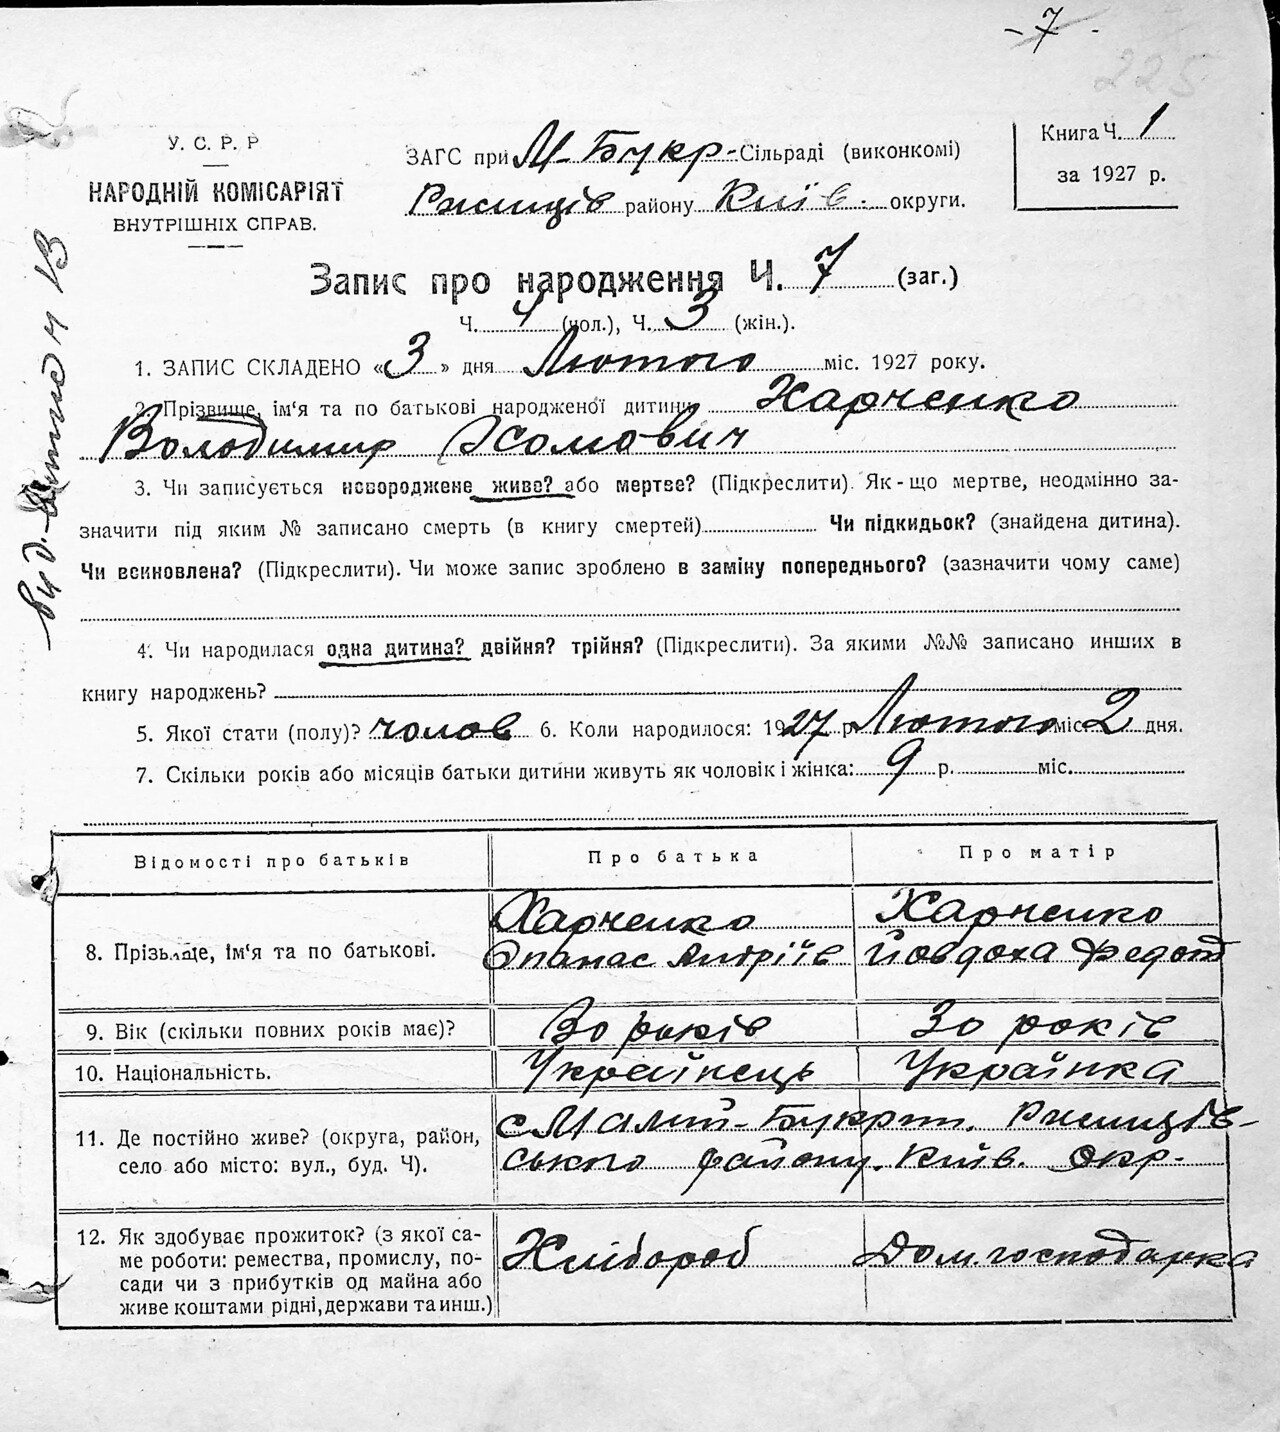 - 7 -
225
У. С. Р. Р
НАРОДНІЙ КОМІСАРІЯТ
ВНУТРІШНІХ СПРАВ.
ЗАГС при М-Букр-Сільраді (виконкомі)
Ржищів району Київ. округи.
Книга Ч. 1
за 1927 р.
Запис про народження Ч. 7 (заг.)
Ч. 4 (чол.), Ч. 3 (жін.).
1. ЗАПИС СКЛАДЕНО «3» дня Лютого міс. 1927 року.
2. Прізвище, ім'я та по батькові народженої дитини Харченко
Володимир Хомович
3. Чи записується новороджене живе? або мертве? (Підкреслити). Як-що мертве, неодмінно за-
значити під яким № записано смерть (в книгу смертей) Чи підкидьок? (знайдена дитина).
Чи всиновлена? (Підкреслити). Чи може запис зроблено в заміну попереднього? (зазначити чому саме)
4. Чи народилася одна дитина? двійня? трійня? (Підкреслити). За якими №№ записано инших в
книгу народжень?
5. Якої стати (полу)? чолов 6. Коли народилося: 1927 р. Лютого міс. 2 дня.
7. Скільки років або місяців батьки дитини живуть як чоловік і жінка: 9 р. міс.
Відомості про батьків Про батька Про матір
8. Прізвище, ім'я та по батькові.
Харченко Харченко
Опанас Андріїв Йовдоха Федот
9. Вік (скільки повних років має)? 30 років 30 років
10. Національність. Українець Українка
11. Де постійно живе? (округа, район,
село або місто: вул., буд. Ч).
с Малий-Букрин. Ржищів-
ського району. Київ. окр.
12. Як здобуває прожиток? (з якої са-
ме роботи: ремества, промислу, по-
сади чи з прибутків од майна або
живе коштами рідні, держави та инш.)
Хлібороб Дом.господарка